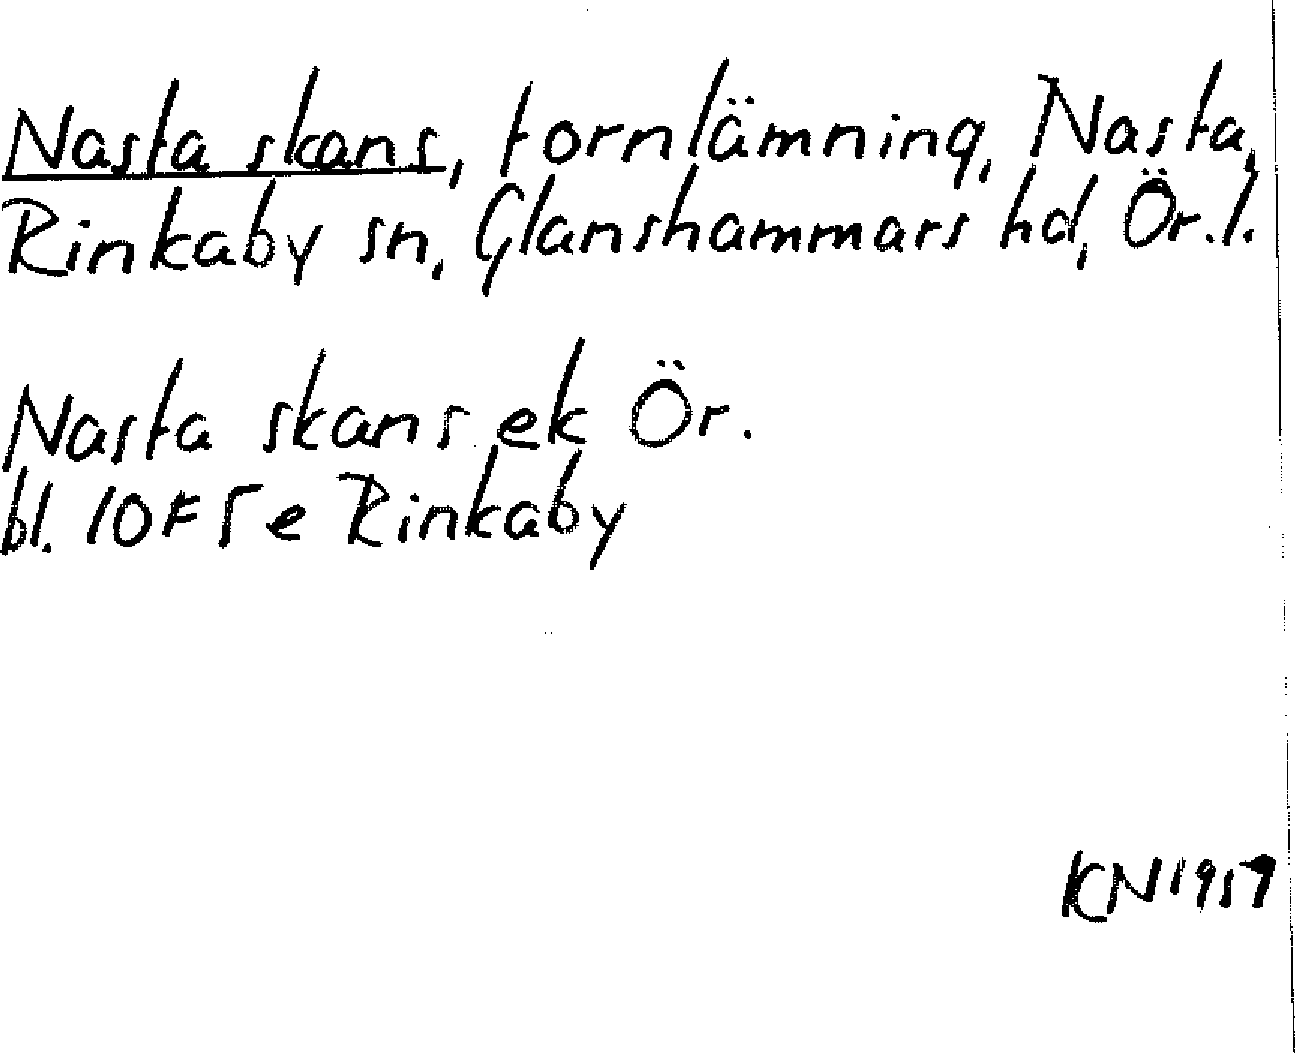 Nasta skans, fornlämning, Nasta,
Rinkaby sn, Glanshammars hd, Ör.l.
Nasta skans ek Ör.
bl. 10F5e Rinkaby
KN 1957